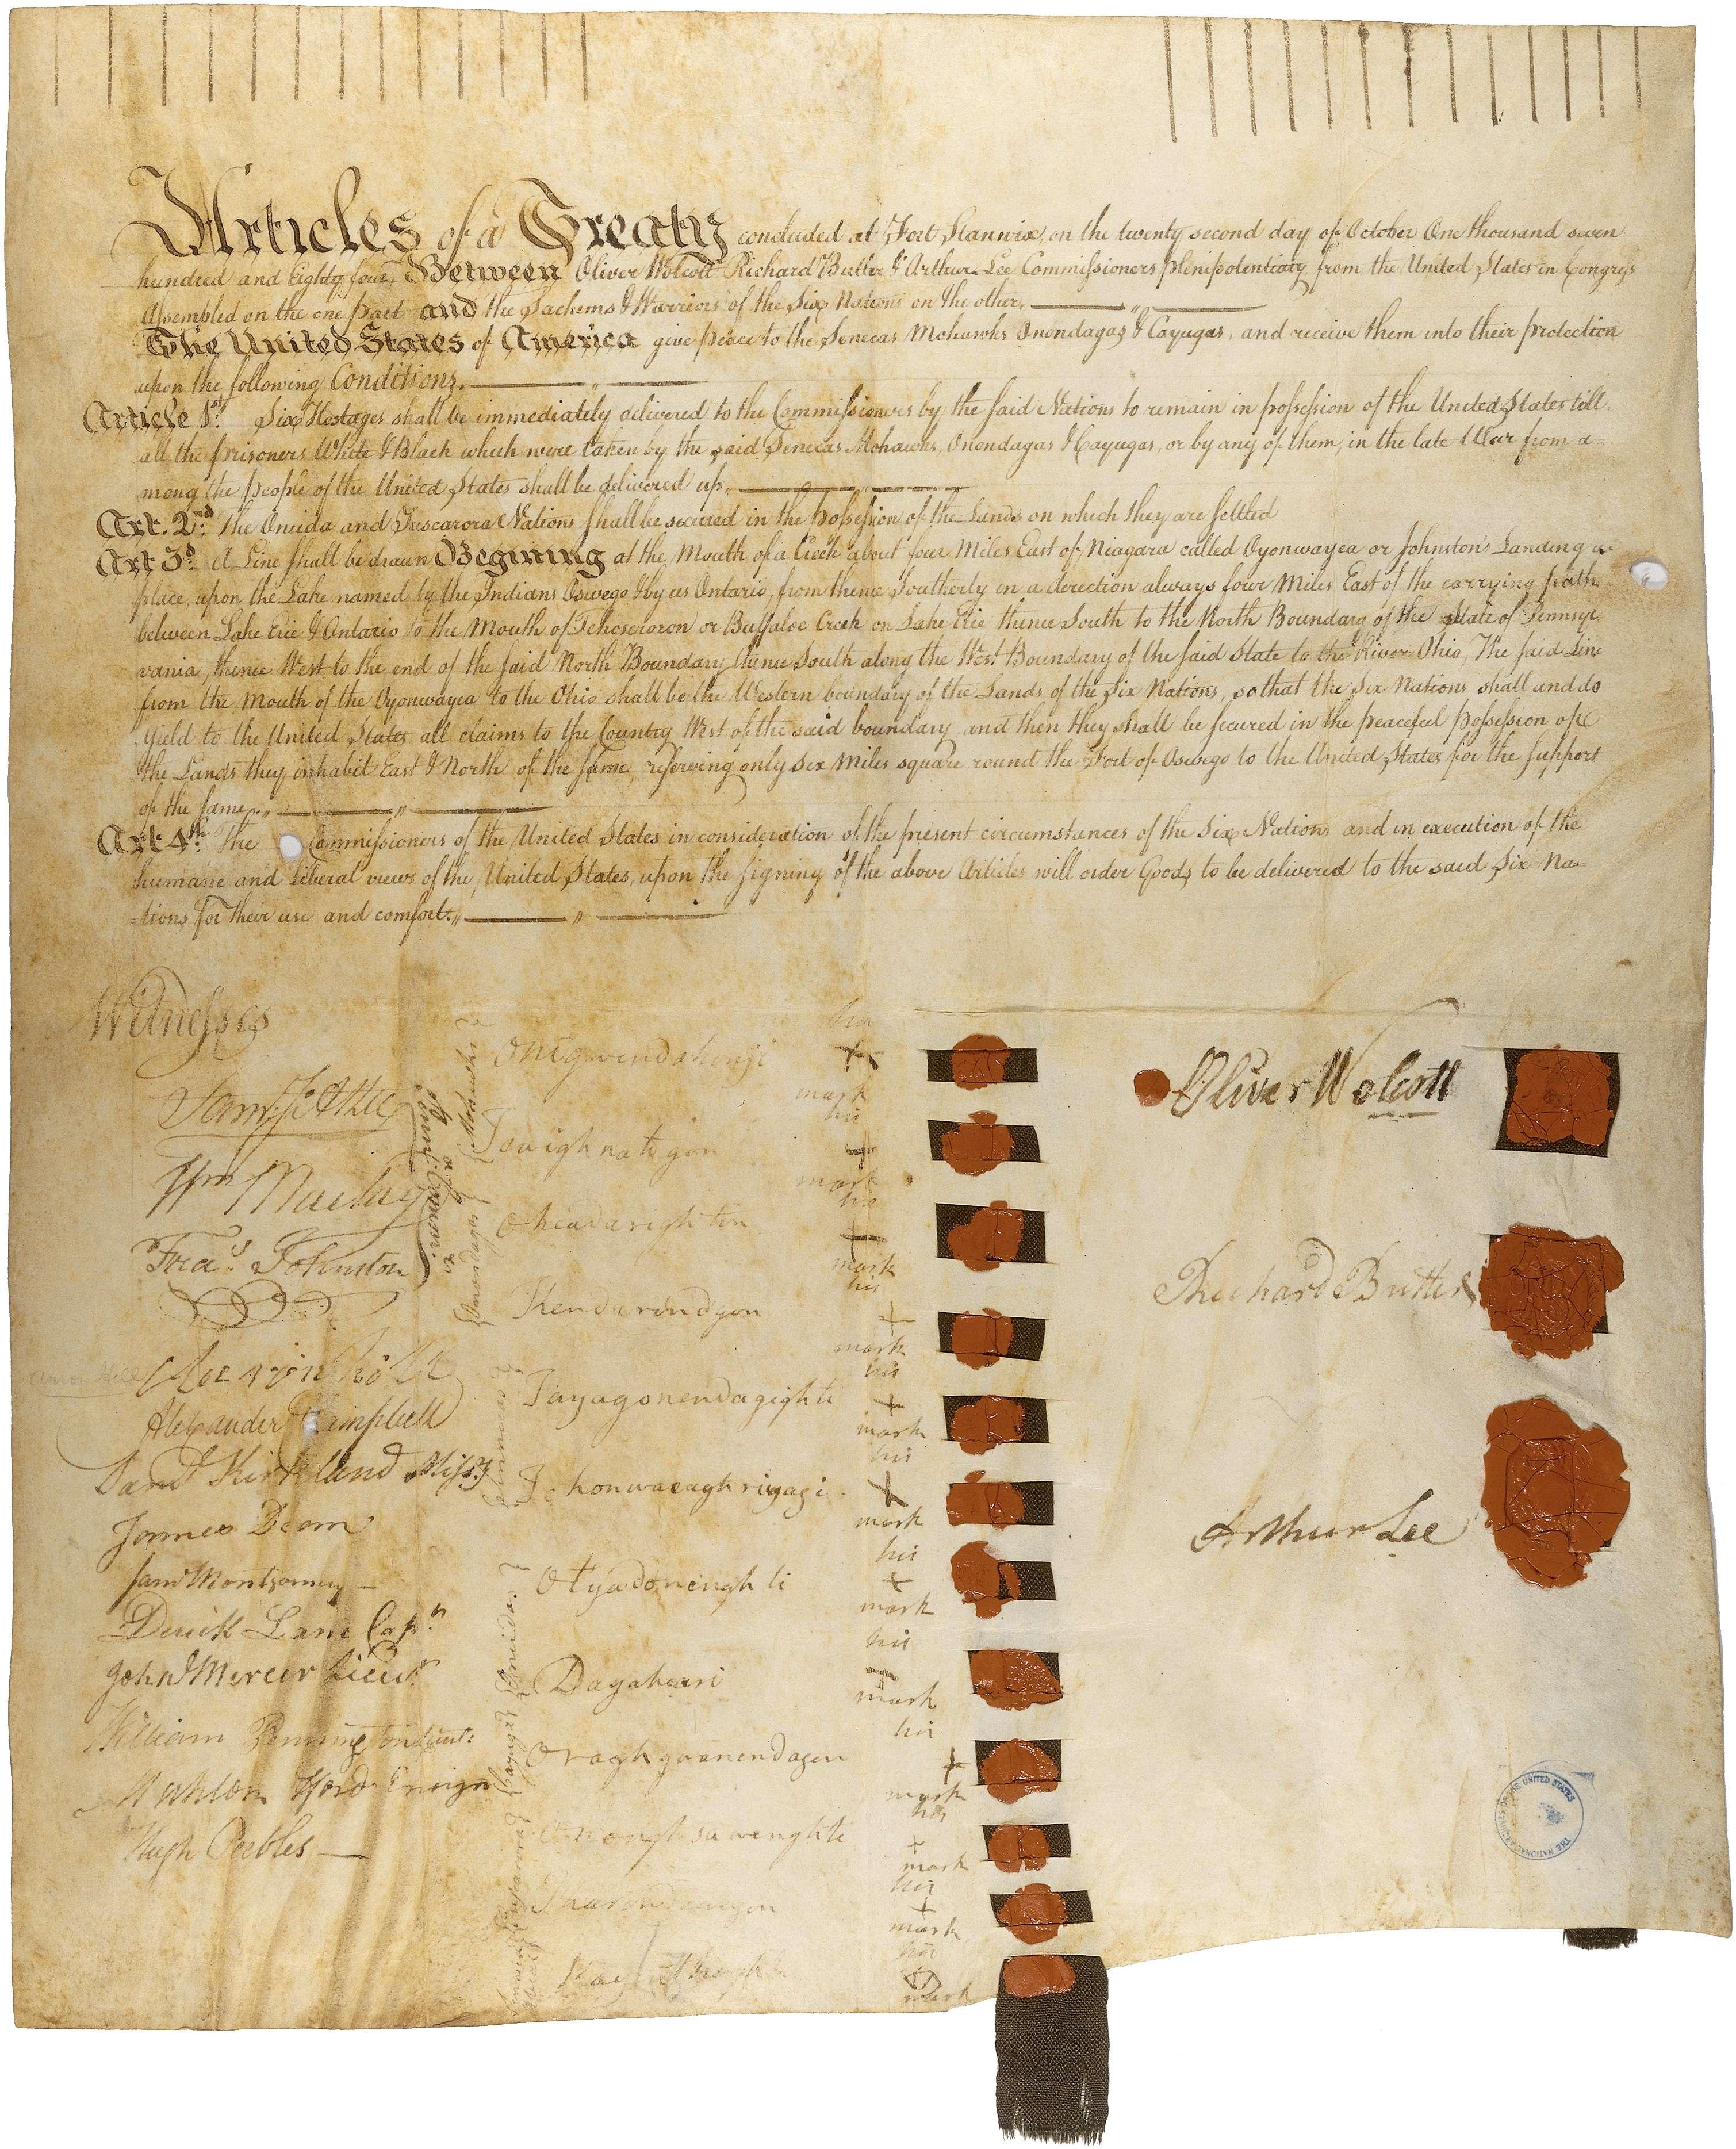 Articles of a Treaty concluded at Fort Stanwix, on the twenty second day of October One thousand seven
hundred and Eighty four, Between Oliver Wolcott Richard Butler & Arthur Lee Commissioners plenipotentiary from the United States in Congress
Assembled on the one part and the Sachems & Warriors of the Six Nations on the other.
The United States of America give peace to the Senecas Mohawks Onondagas & Cayugas, and receive them into their protection
upon the following Conditions.
Article 1st. Six Hostages shall be immediately delivered to the Commissioners by the said Nations to remain in possession of the United States till
all the prisoners White & Black which were taken by the said Senecas Mohawks, Onondagas & Cayugas, or by any of them, in the late War from a-
mong the people of the United States shall be delivered up.
Art. 2nd. The Oneida and Tuscarora Nations shall be secured in the possession of the Lands on which they are settled
Art 3d. A Line shall be drawn Begining at the Mouth of a Creek about four Miles East of Niagara called Oyonwayea or Johnston's Landing
place, upon the Lake named by the Indians Oswego & by us Ontario, from thence Southerly in a derection always four Miles East of the carrying path
between Lake Erie & Ontario to the Mouth of Tehoseroron or Buffaloe Creek on Lake Erie thence South to the North Boundary of the State of Pennsyl-
vania, thence West to the end of the said North Boundary thence South along the West Boundary of the said State to the River Ohio, The said Line
from the Mouth of the Oyonwayea to the Ohio shall be the Western boundary of the Lands of the Six Nations, so that the Six Nations shall and do
yield to the United States all claims to the Country West of the said boundary and then they shall be secured in the peaceful possession of
the Lands they inhabit East & North of the same, reserving only six Miles square round the Fort of Oswego to the United States for the support
of the same.
Art 4th. The Commissioners of the United States in consideration of the present circumstances of the Six Nations and in execution of the
humane and liberal views of the United States, upon the signing of the above Articles will order Goods to be delivered to the said Six Na-
-tions for their use and comfort.
Witnesses
Saml. J. Atlee
Wm Maclay
Fras. Johnston
Pennsa. Commrs.
Aaron Hill
Alexander Campbell
Saml Kirkland Missy
James Dean
Saml Montgomery
Derick Lane Capn
John Mercer Lieut
William Pennington Lieut.
Mahlon Ford Ensign
Hugh Peebles
Mohawks
Onogwendahonji his mark
Towighnatogon his mark
Onondagas
Oheadarighton his mark
Kendarindgon his mark
Sennecas
Tayagonendagighti his mark
Tehonwaeaghriyagi his mark
Oneidas
Otyadonenghti his mark
Dagaheari his mark
Cayugas
Oraghgoanendagen his mark
his mark
his mark
his mark
Oliver Wolcott
Richard Butler
Arthur Lee
THE NATIONAL ARCHIVES OF THE UNITED STATES